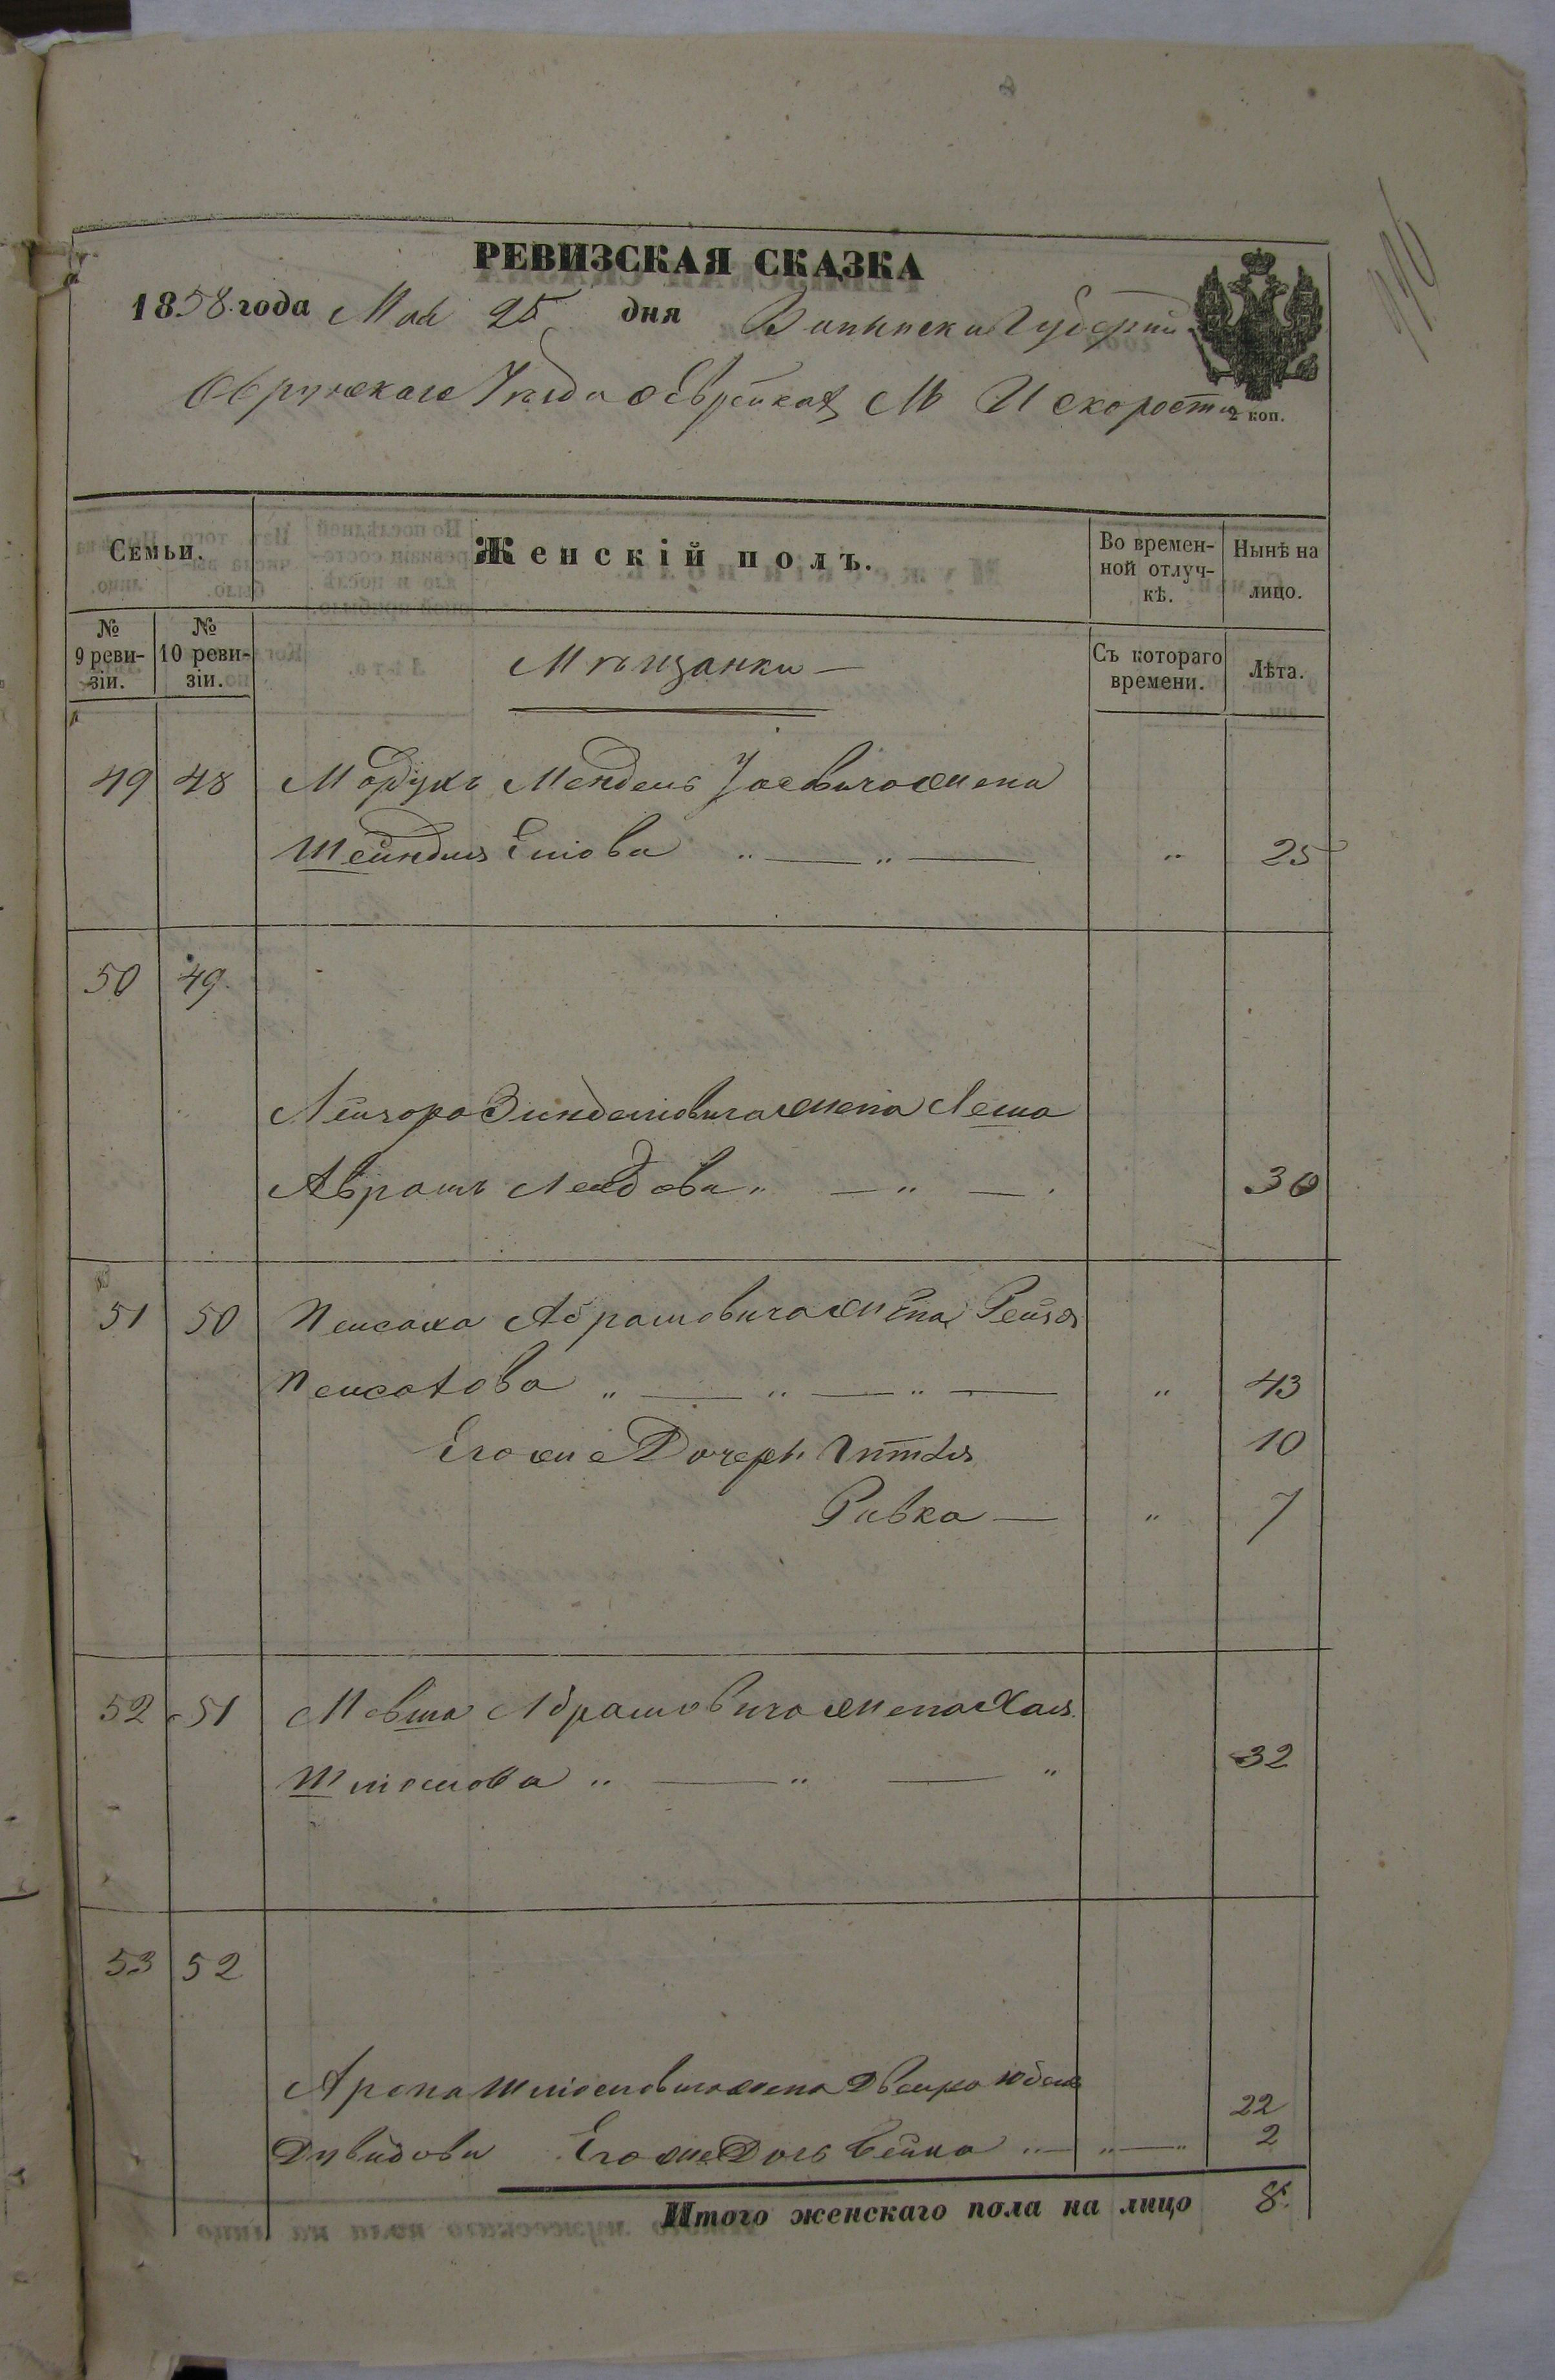 РЕВИЗСКАЯ СКАЗКА
1858 года Мая 25 дня Волынской Губерніи
Овручскаго Уезда о Еврейкахъ М Искорости
2 коп.
Семьи.
Женскій полъ.
Во времен-
ной отлуч-
кѣ.
Нынѣ на
лицо.
№
9 реви-
зіи.
№
10 реви-
зіи.
Мѣщанки —
Съ котораго
времени.
Лѣта.
49 48 Мордухъ Мендель жена
Шейндля " — " — " 25
50 49.
жена Леша
Аврамъ " — " — 30
51 50 Пейсаха Абрамовича жена Рейзя
Пейсахова " — " — " — " 43
Его же Дочери Гитля 10
Ривка — " 7
52 51 Мовша Абрамовича жена Хая
Шліомова " — " — " 32
53 52
Арона Шліомовича жена Двейра 22
Давидова Его же Дочь Бейла " — " — " 2
Итого женскаго пола на лицо 8.